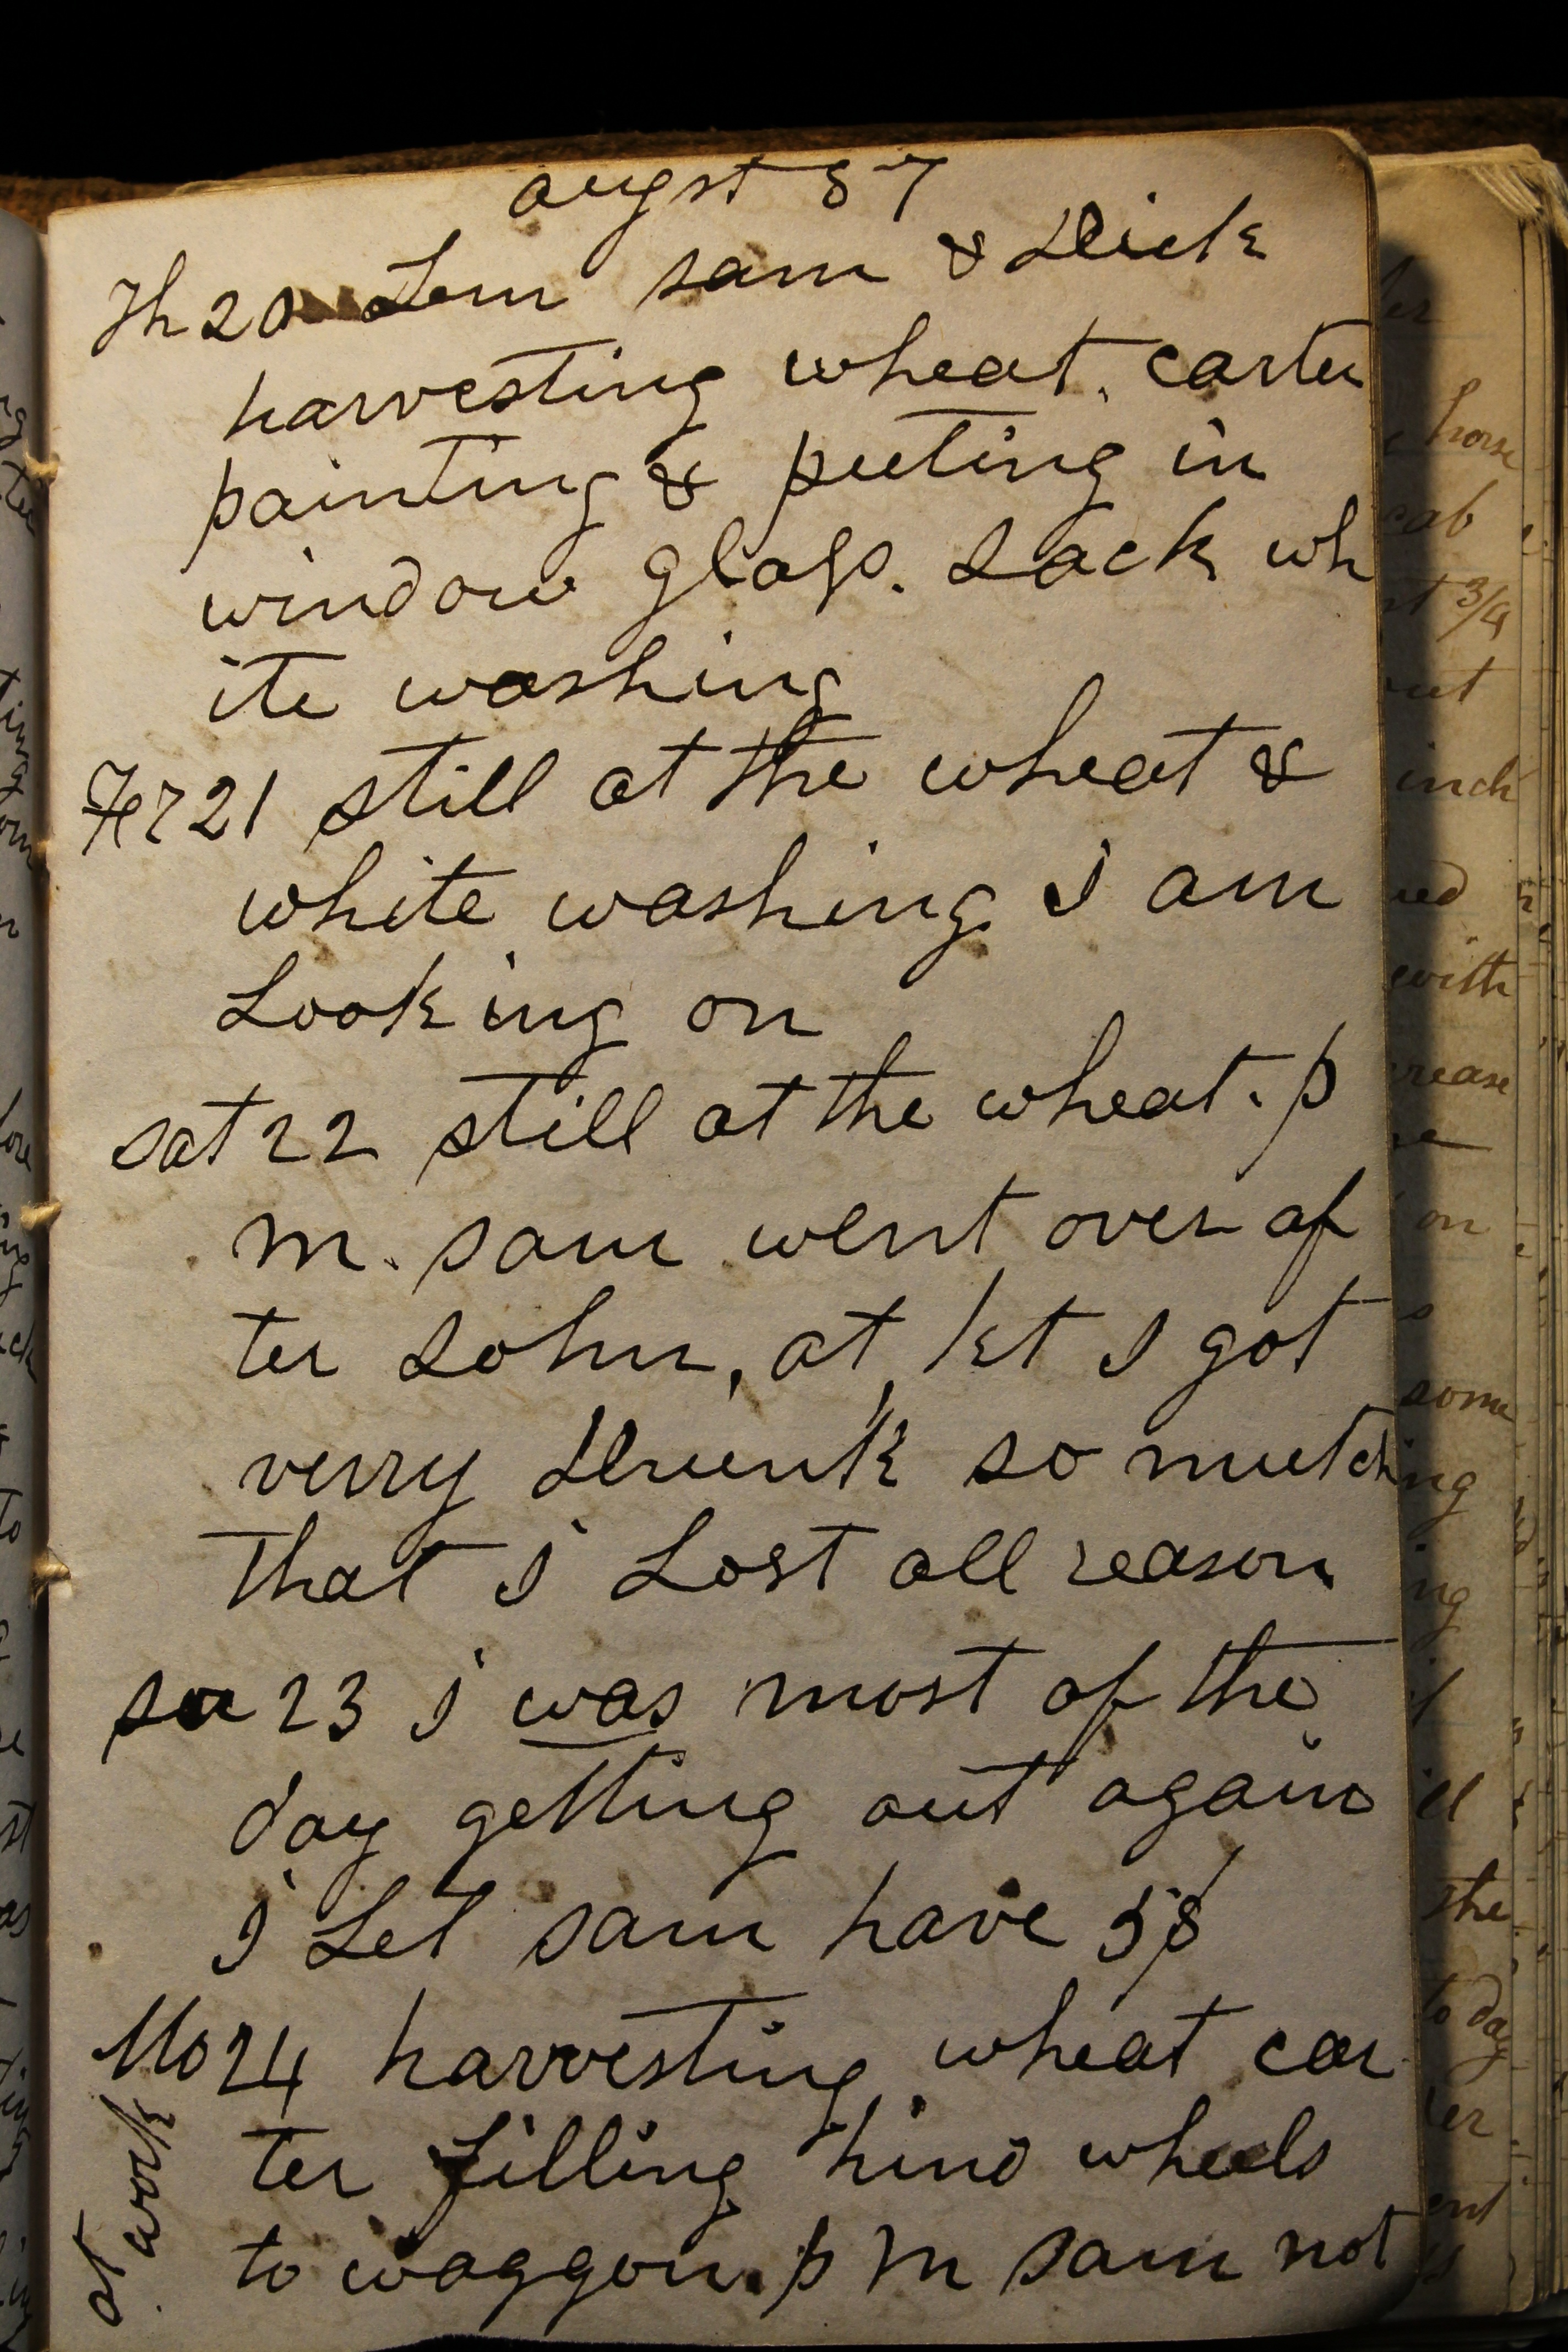 augst 57
Th 20 Lem sam & Dick
harvesting wheat. carter
painting & puting in
window glass. Jack wh
ite washing
Fr 21 still at the wheat &
white washing I am
Looking on
sat 22 still at the wheat. p
m. sam went over af
ter John, at kt I got
verry Drunk so mutch
that I Lost all reason
su 23 I was most of the
day getting out again
I Let sam have 5$
Mo 24 harvesting wheat car
ter filling hind wheels
to waggon. p m sam not
at work
horse
cab
3/4
inch
with
on
some
to day